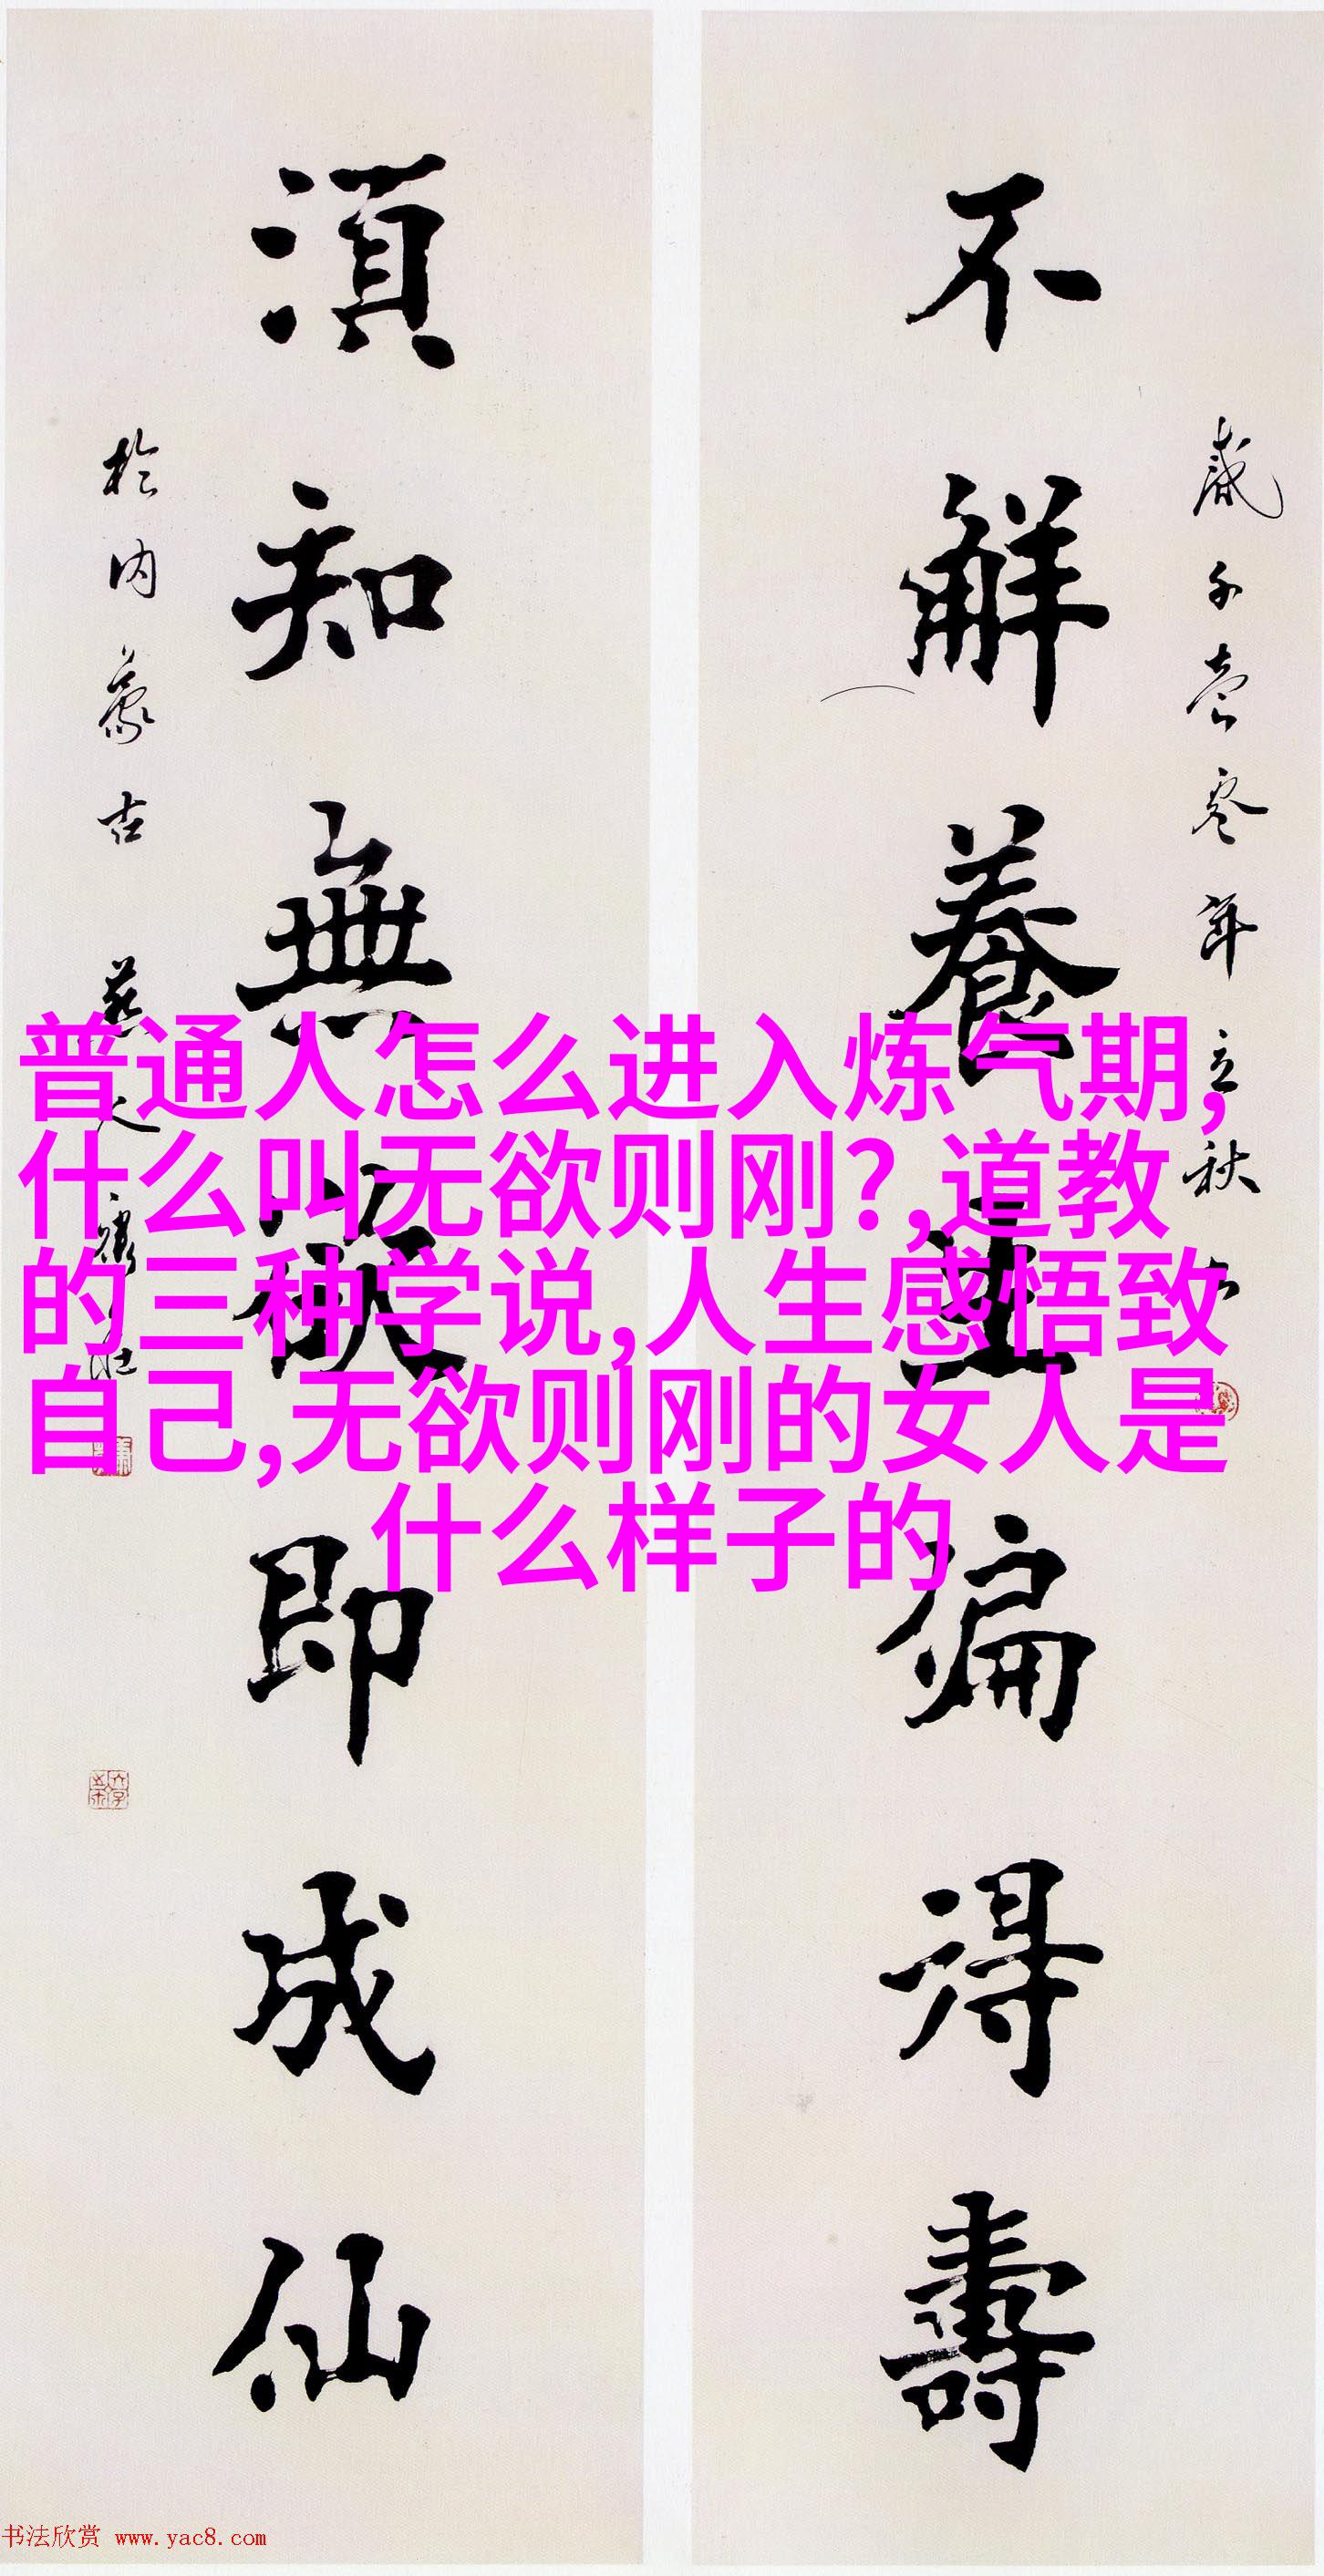 不解養生偏得壽
歲于壹零年立秋
須知無欲即成仙
於內蒙古燕人
普通人怎么进入炼气期,
什么叫无欲则刚?,道教
的三种学说,人生感悟致
自己,无欲则刚的女人是
什么样子的
书法欣赏 www.yac8.com